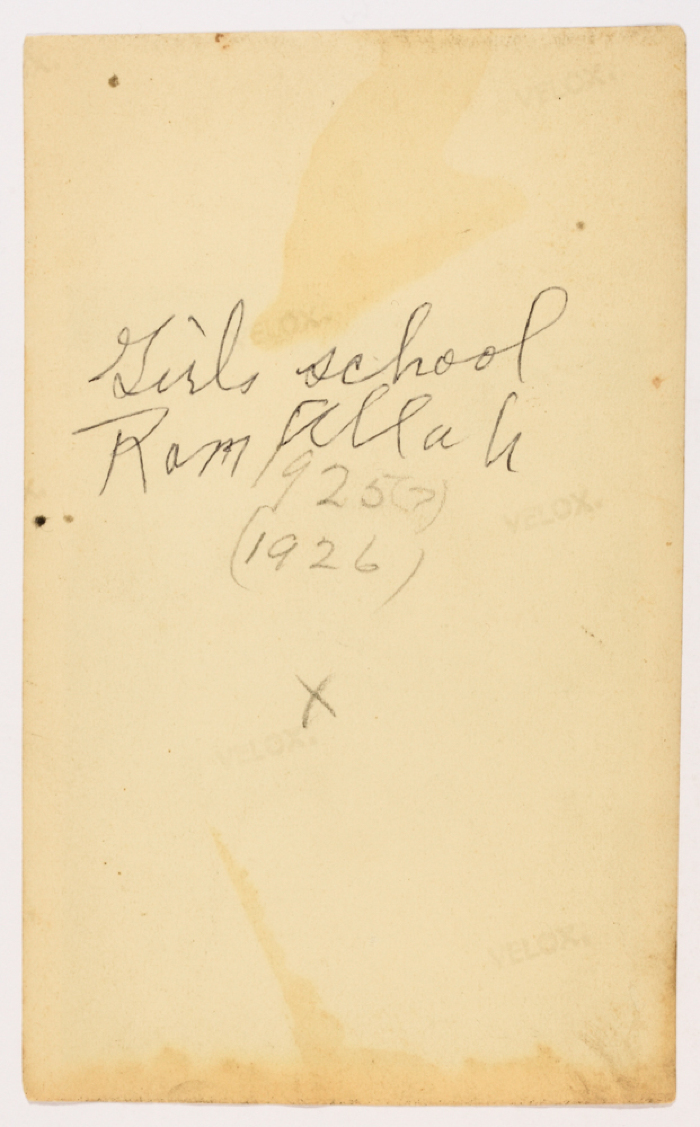 VELOX.
VELOX.
Girls school
Ram Allah
1925(?)
(1926)
VELOX.
X
VELOX.
VELOX.